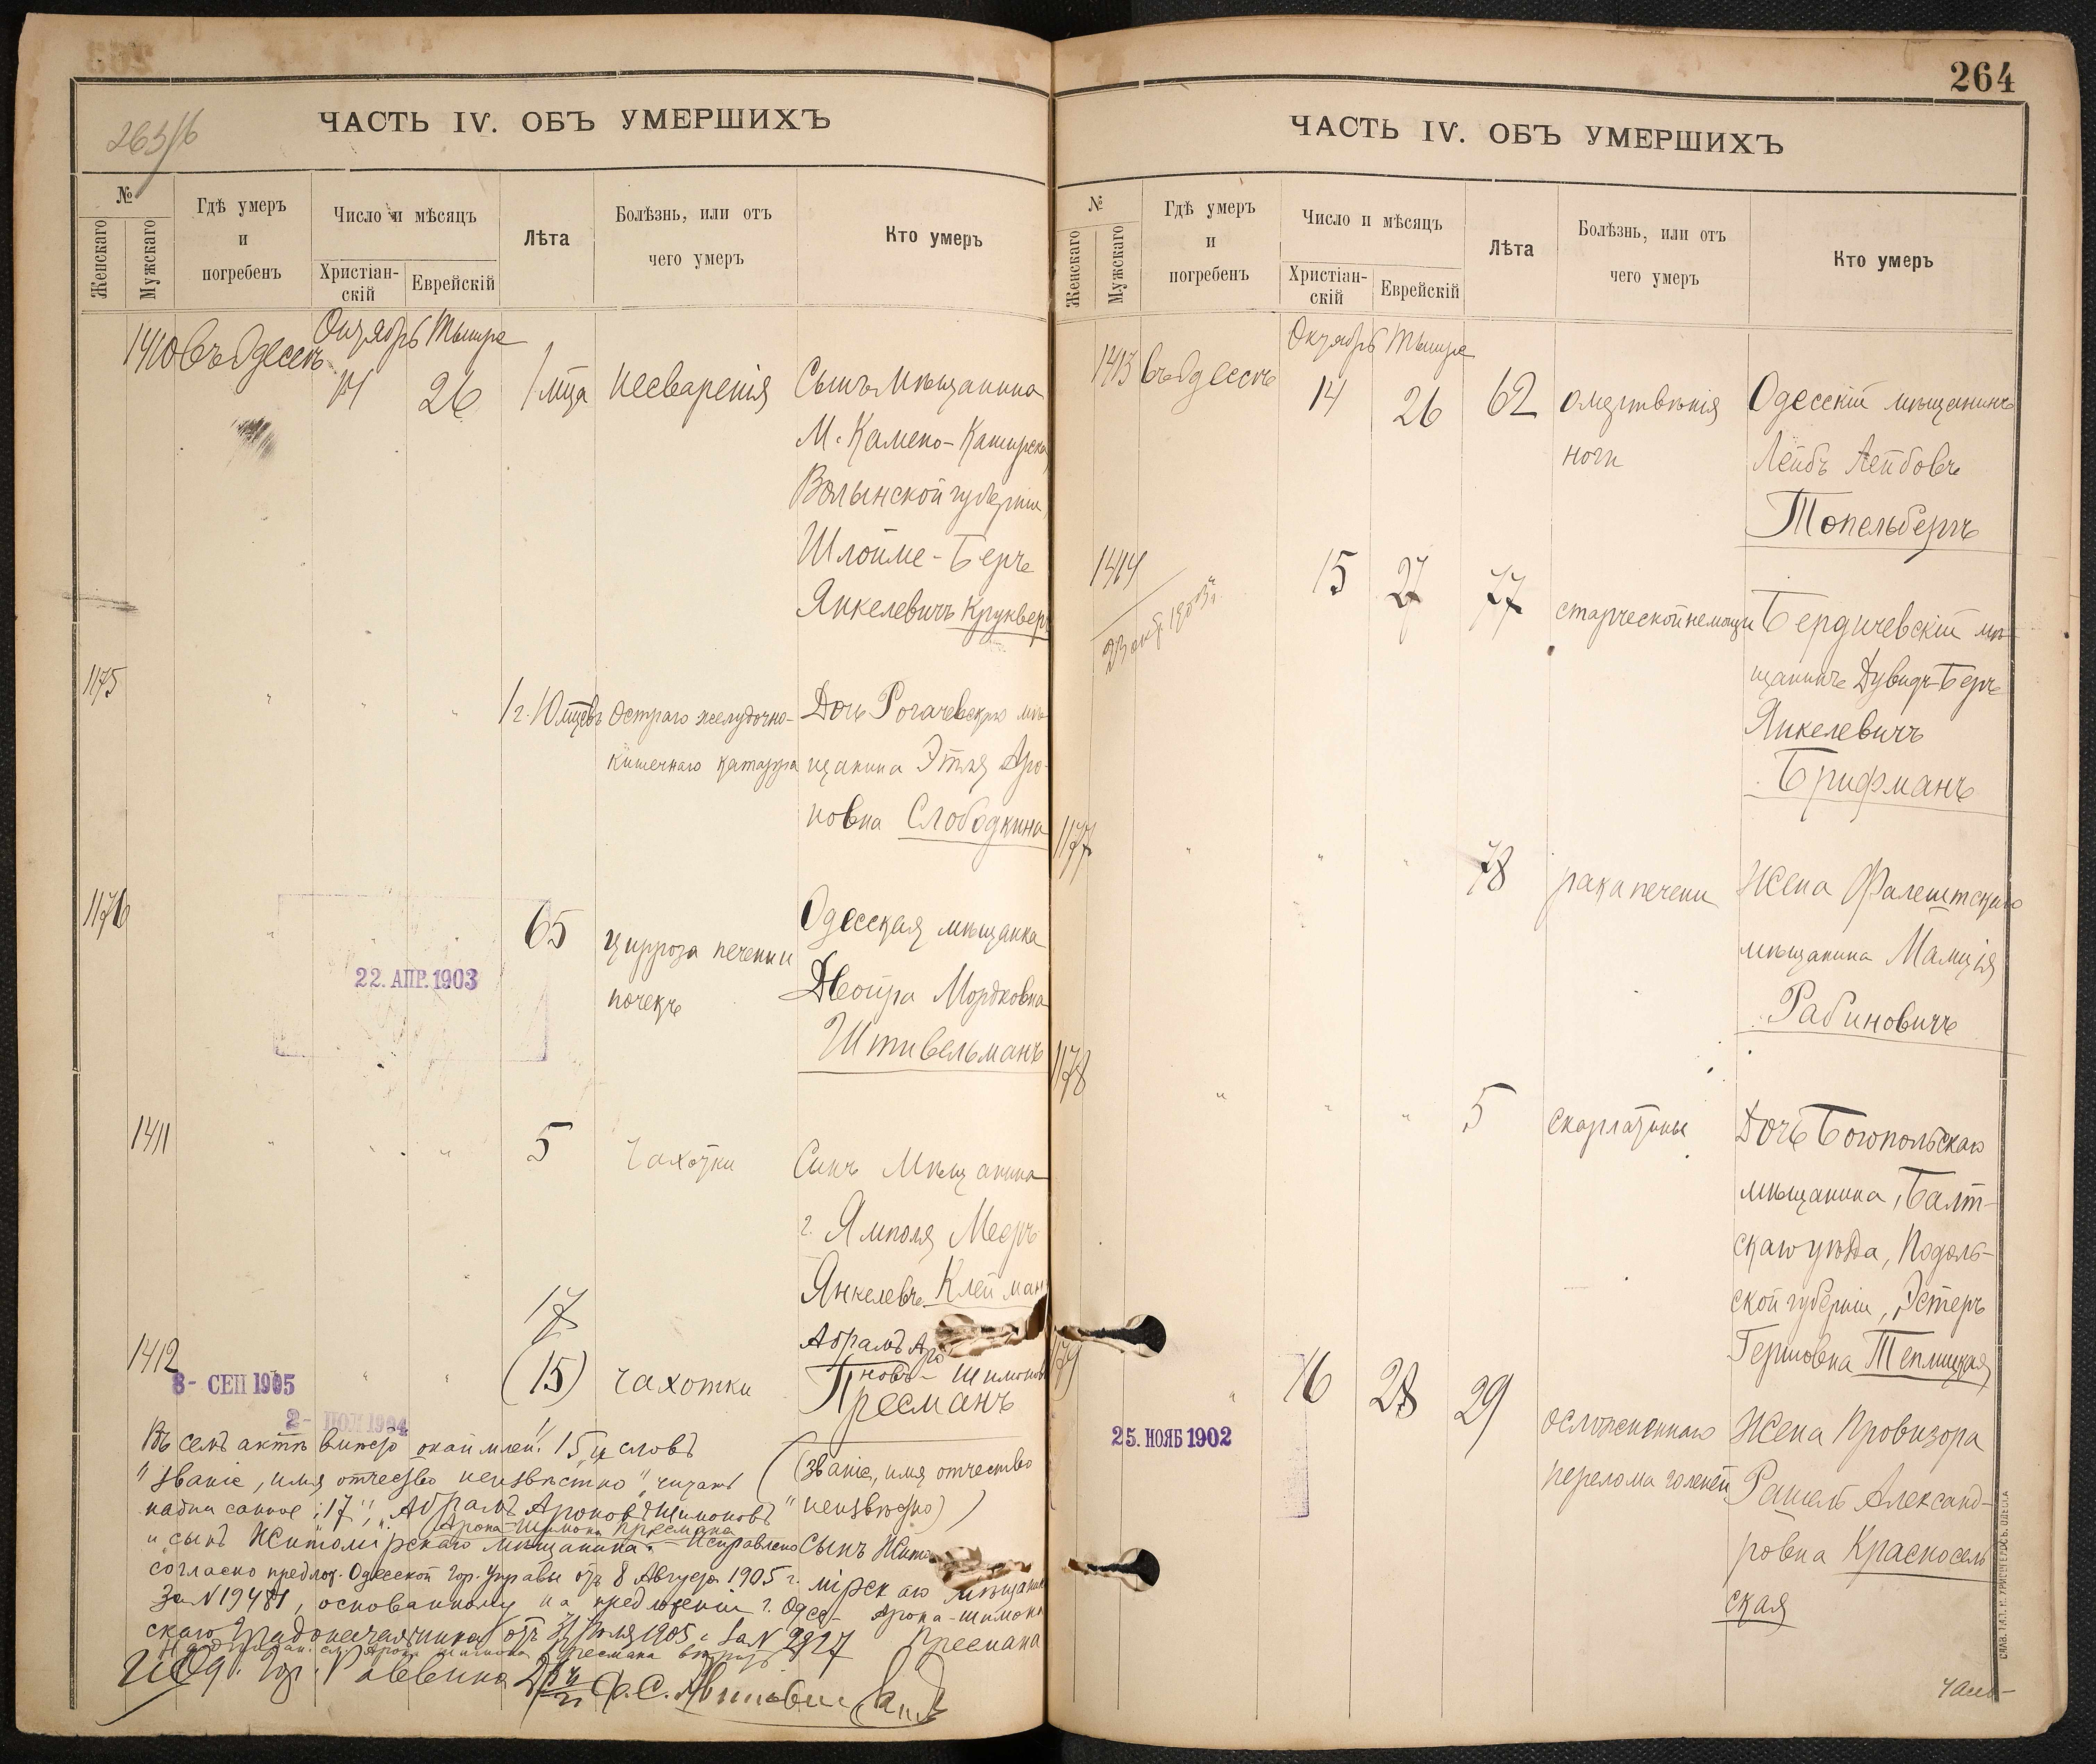 263/б
ЧАСТЬ IV. ОБЪ УМЕРШИХЪ
№
Женскаго
Мужскаго
Гдѣ умеръ
и
погребенъ
Число и мѣсяцъ
Христіан-
скій
Еврейскій
Лѣта
Болѣзнь, или отъ
чего умеръ
Кто умеръ
Октябрь Тышре
1410 въ Одессѣ 14 26 1 мца несваренія Сынъ мѣщанина
М. Камено-Каширска
Волынской губерніи,
Шлойме-Беръ
Янкелевичъ Крукверъ
1175 " " " 1 г. 10 мцевъ Остраго желудочно- Дочь Рогачевскаго мѣ-
кишечнаго катарра щанина Этля Аро-
новна Слободкина
1176 " " 65 цирроза печени и Одесская мѣщанка
почекъ Двойра Мордковна
Штивельманъ
22. АПР. 1903
1411 " " " 5 Чахотки Сынъ мѣщанина
г. Ямполя Мееръ
Янкелевъ Клейман
17
1412 " " (15) чахотки Абрамъ Аро
новъ-Шимонов
Пресманъ
8- СЕП 1905
2- 1904
Въ семъ актѣ вмѣсто окаймлен. 15 и словъ (званіе, имя отчество
"званіе, имя отчество неизвѣстно" читать неизвѣстно)
надписанное "17", "Абрамъ Ароновъ Шимоновъ"
Арона-Шимона Пресмана
и "сынъ Житомірскаго мѣщанина". Исправлено Сынъ Жито
согласно предлож. Одесской Гор. Управы отъ 8 Августа 1905 г. мірскаго мѣщан
за N 19481, основанному на предложеніи г. Одес- Арона-Шимона
скаго Градоначальника отъ 31 Іюля 1905 г. за N 2927 Пресмана
264
ЧАСТЬ IV. ОБЪ УМЕРШИХЪ
№
Женскаго
Мужскаго
Гдѣ умеръ
и
погребенъ
Число и мѣсяцъ
Христіан-
скій
Еврейскій
Лѣта
Болѣзнь, или отъ
чего умеръ
Кто умеръ
Октябрь Тышре
1413 въ Одессѣ 14 26 62 омертвѣнія Одесскій мѣщанинъ
ноги Лейбъ Лейбовъ
Топельбергъ
1414 15 27 77 старческой немощи Бердичевскій мѣ-
23 окт. 1903 г.
щанинъ Дувидъ-Беръ
Янкелевичъ
Брифманъ
1177 " " " 78 рака печени Жена Фалештскаго
мѣщанина Мамція
Рабиновичъ
1178 " " " 5 скарлатины Дочь Богопольскаго
мѣщанина, Балт-
скаго уѣзда, Подоль-
ской губерніи, Эстеръ
Гершовна Теплицкая
1179 " 16 28 29 осложненнаго Жена Провизора
перелома голеней Рашель Александ-
ровна Красносель
ская
25. НОЯБ 1902